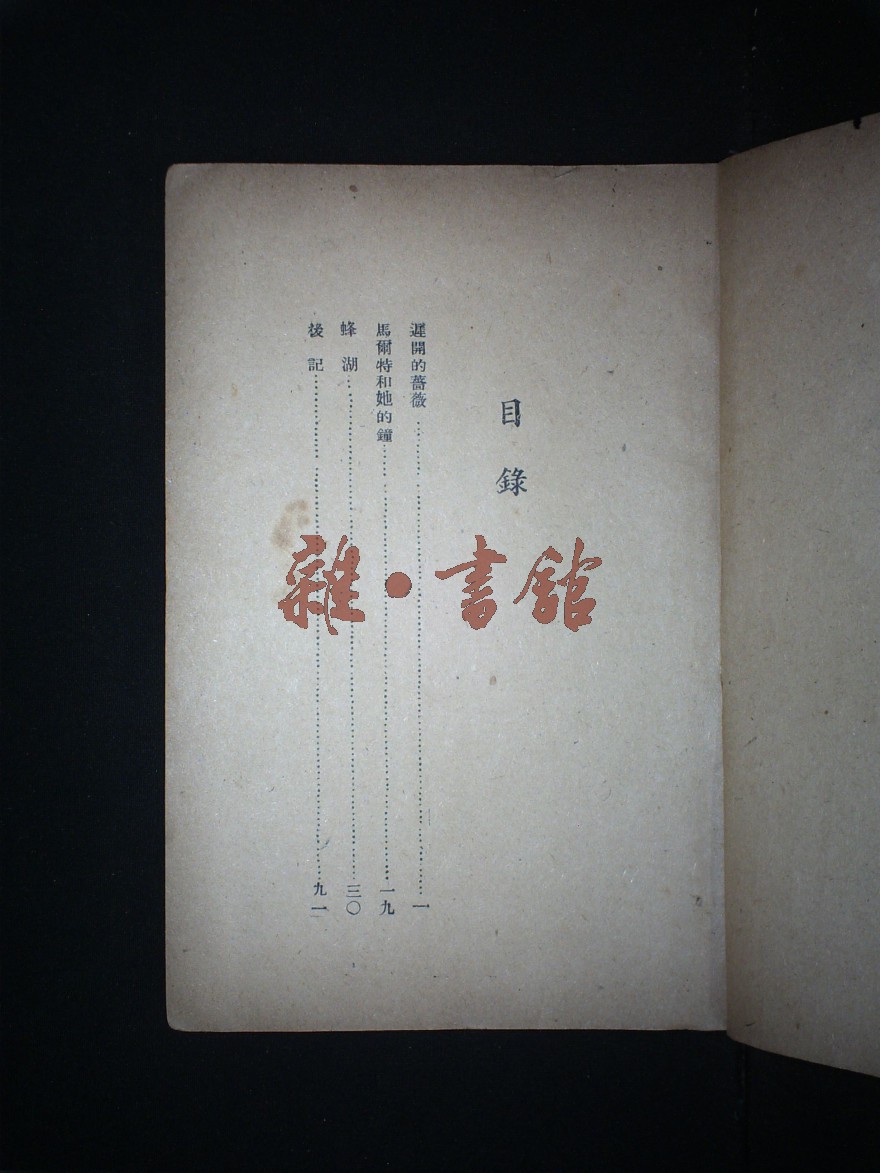 目錄
遲開的薔薇……一
馬爾特和她的鐘……一九
蜂湖……三〇
後記……九一
雜•書館